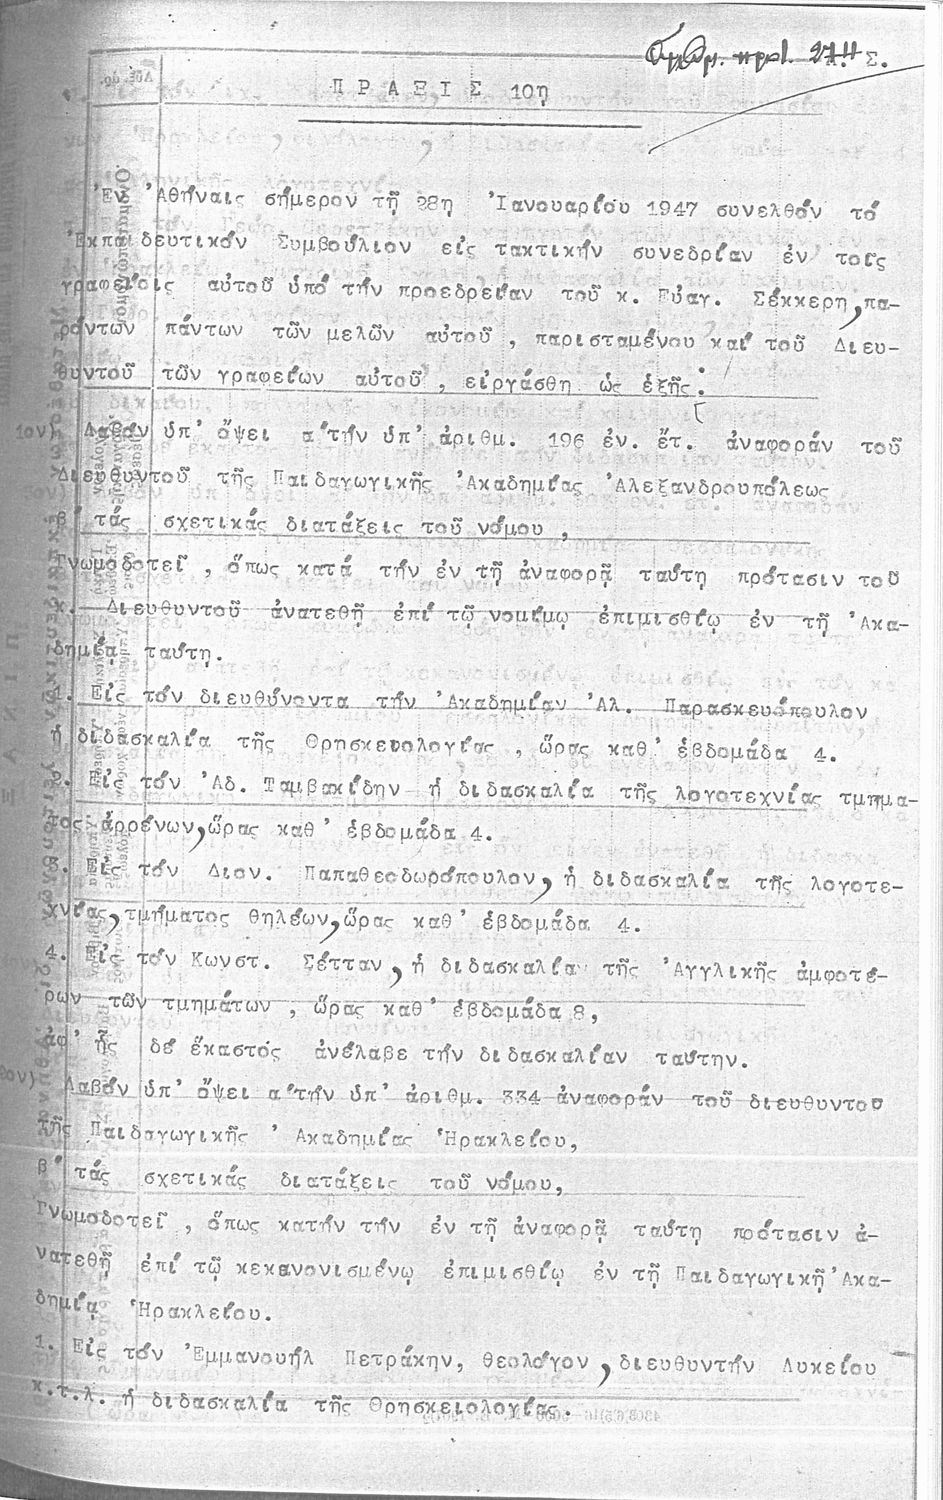 Σ.
ΠΡΑΞΙΣ 10η
Ἐν Ἀθήναις σήμερον τῇ 28η Ἰανουαρίου 1947 συνελθόν τό
Ἐκπαιδευτικόν Συμβούλιον εἰς τακτικήν συνεδρίαν ἐν τοῖς
γραφείοις αὐτοῦ ὑπό τήν προεδρείαν τοῦ κ. Εὐαγ. Σέκκερη, πα-
ρόντων πάντων τῶν μελῶν αὐτοῦ, παρισταμένου καί τοῦ Διευ-
θυντοῦ τῶν γραφείων αὐτοῦ, εἰργάσθη ὡς ἑξῆς:
1ον) Λαβόν ὑπ' ὄψει α'τήν ὑπ' ἀριθμ. 196 ἐν. ἔτ. ἀναφοράν τοῦ
Διευθυντοῦ τῆς Παιδαγωγικῆς Ἀκαδημίας Ἀλεξανδρουπόλεως
β' τάς σχετικάς διατάξεις τοῦ νόμου,
Γνωμοδοτεῖ, ὅπως κατά τήν ἐν τῇ ἀναφορᾷ ταύτῃ πρότασιν τοῦ
κ. Διευθυντοῦ ἀνατεθῇ ἐπί τῷ νομίμῳ ἐπιμισθίῳ ἐν τῇ Ἀκα-
δημίᾳ ταύτῃ.
1. Εἰς τόν διευθύνοντα τήν Ἀκαδημίαν Ἀλ. Παρασκευόπουλον
ἡ διδασκαλία τῆς Θρησκειολογίας, ὥρας καθ' ἑβδομάδα 4.
2. Εἰς τόν Ἀδ. Ταμβακίδην ἡ διδασκαλία τῆς λογοτεχνίας τμημα-
τος ἀρρένων, ὥρας καθ' ἑβδομάδα 4.
3. Εἰς τόν Διον. Παπαθεοδωρόπουλον, ἡ διδασκαλία τῆς λογοτε-
χνίας, τμήματος θηλέων, ὥρας καθ' ἑβδομάδα 4.
4. Εἰς τόν Κωνστ. Σέτταν, ἡ διδασκαλία τῆς Ἀγγλικῆς ἀμφοτέ-
ρων τῶν τμημάτων, ὥρας καθ' ἑβδομάδα 8,
ἀφ' ἧς δέ ἕκαστός ἀνέλαβε τήν διδασκαλίαν ταύτην.
2ον) Λαβόν ὑπ' ὄψει α'τήν ὑπ' ἀριθμ. 334 ἀναφοράν τοῦ διευθυντοῦ
τῆς Παιδαγωγικῆς Ἀκαδημίας Ἡρακλείου,
β' τάς σχετικάς διατάξεις τοῦ νόμου,
Γνωμοδοτεῖ, ὅπως κατήν τήν ἐν τῇ ἀναφορᾷ ταύτῃ πρότασιν ἀ-
νατεθῇ ἐπί τῷ κεκανονισμένῳ ἐπιμισθίῳ ἐν τῇ Παιδαγωγικῇ Ἀκα-
δημίᾳ Ἡρακλείου.
1. Εἰς τόν Ἐμμανουήλ Πετράκην, θεολόγον, διευθυντήν Λυκείου
κ.τ.λ. ἡ διδασκαλία τῆς Θρησκειολογίας.